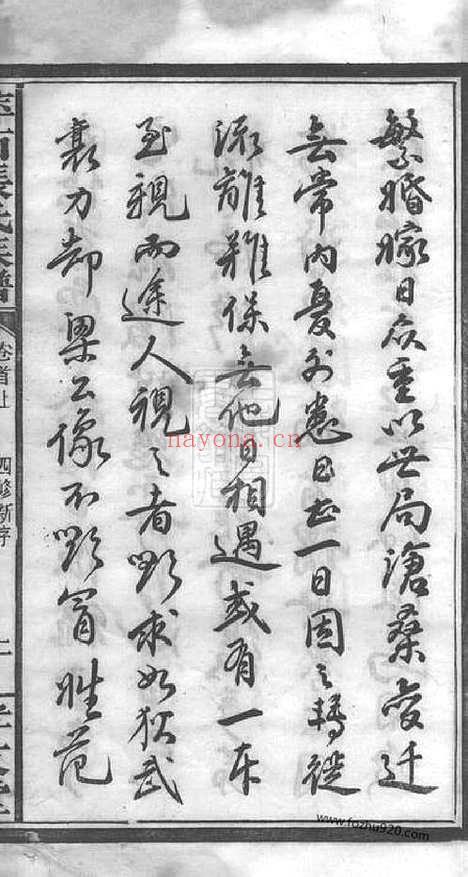 繁婚嫁日众重以世局滄桑變迁
無常内憂外患日甚一日因之轉徙
流離難保無他日相遇或有一本
至親而途人視之者歟求如狄武
襄力却梁公像不歟冒牲范
氏族譜
卷首上
四修新序
www.fozhu920.com
nayona.cn